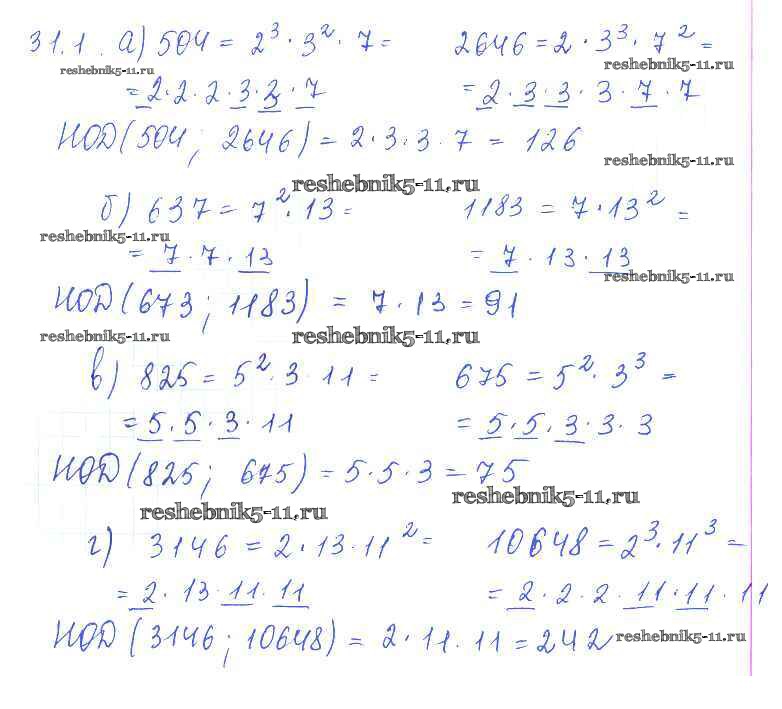 31.1. а) 504 = 2³ · 3² · 7 = 2646 = 2 · 3³ · 7² =
reshebnik5-11.ru reshebnik5-11.ru
= 2 · 2 · 2 · 3 · 3 · 7 = 2 · 3 · 3 · 3 · 7 · 7
НОД (504; 2646) = 2 · 3 · 3 · 7 = 126
reshebnik5-11.ru
reshebnik5-11.ru
б) 637 = 7² · 13 = 1183 = 7 · 13² =
reshebnik5-11.ru
= 7 · 7 · 13 = 7 · 13 · 13
reshebnik5-11.ru
НОД (673; 1183) = 7 · 13 = 91
reshebnik5-11.ru reshebnik5-11.ru
в) 825 = 5² · 3 · 11 = 675 = 5² · 3³ =
= 5 · 5 · 3 · 11 = 5 · 5 · 3 · 3 · 3
НОД (825; 675) = 5 · 5 · 3 = 75
reshebnik5-11.ru
reshebnik5-11.ru
г) 3146 = 2 · 13 · 11² = 10648 = 2³ · 11³ =
= 2 · 13 · 11 · 11 = 2 · 2 · 2 · 11 · 11 · 11
НОД (3146; 10648) = 2 · 11 · 11 = 242 reshebnik5-11.ru